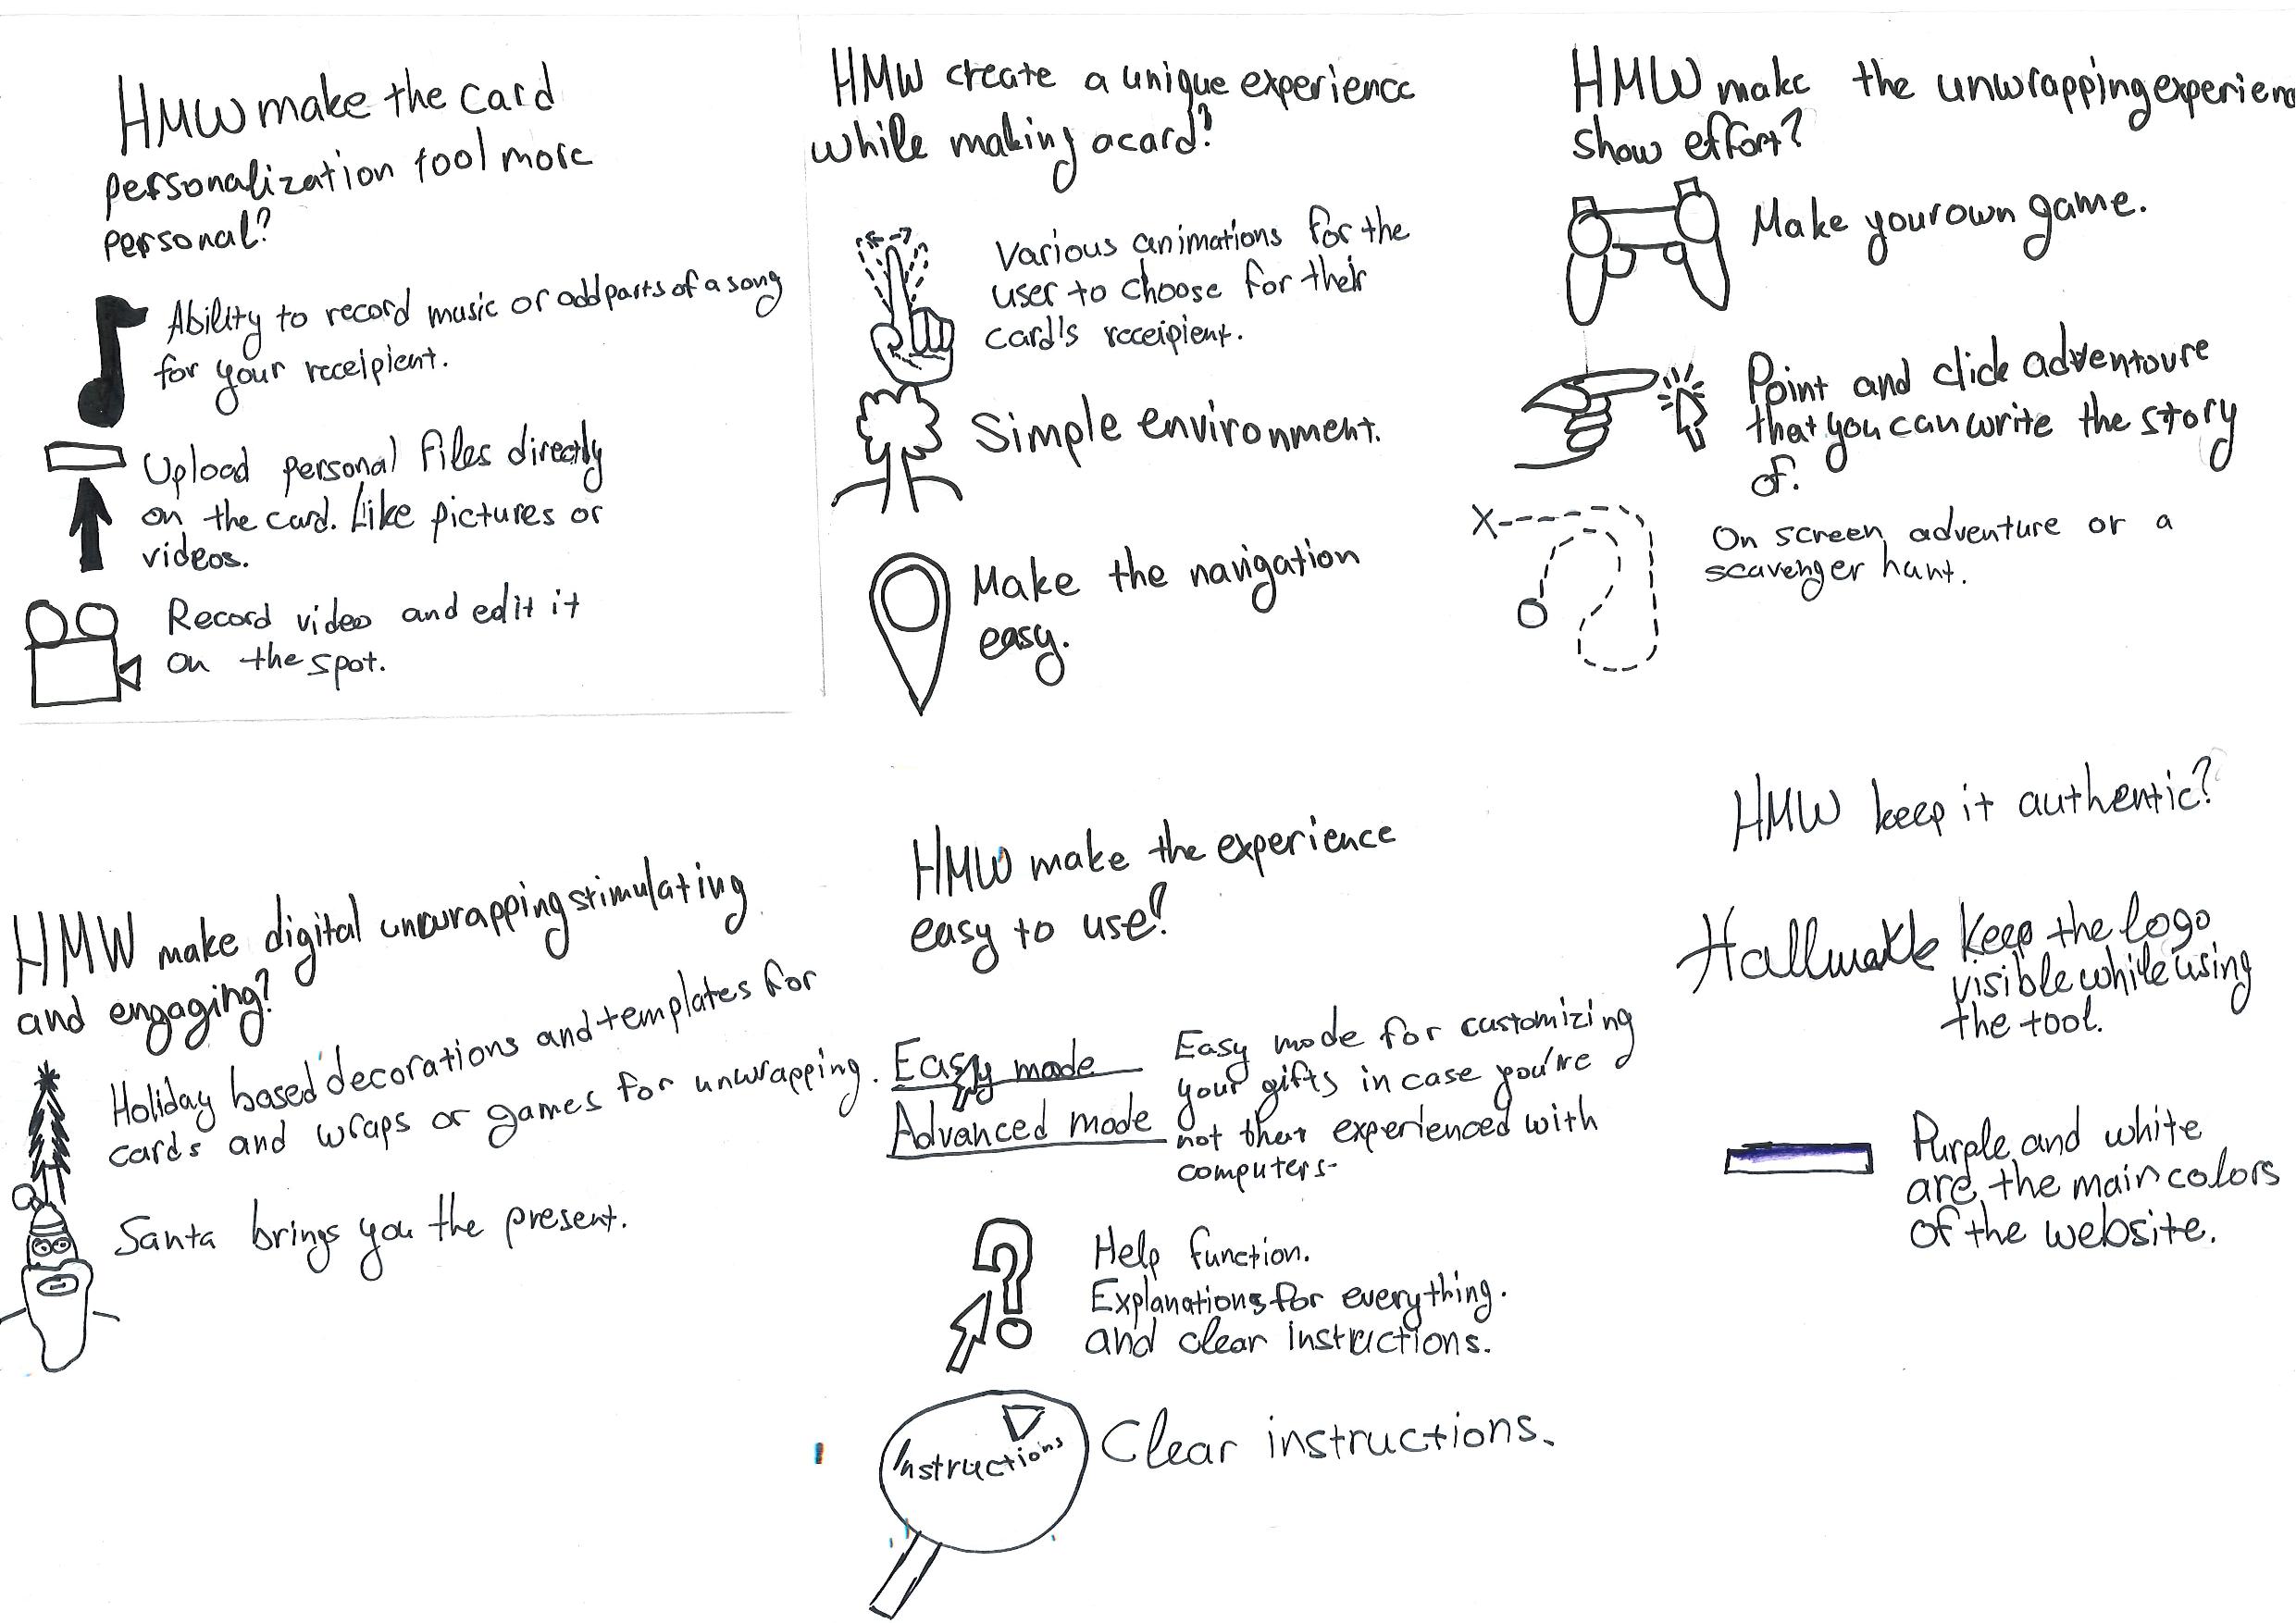 HMW make the card
personalization tool more
personal?
Ability to record music or add parts of a song
for your receipient.
Upload personal files directly
on the card. Like pictures or
videos.
Record video and edit it
on the spot.
HMW create a unique experience
while making a card?
Various animations for the
user to choose for their
card's receipient.
Simple environment.
Make the navigation
easy.
HMW make the unwrapping experienc
show effort?
Make your own game.
Point and click adventoure
that you can write the story
of.
X
On screen adventure or a
scavenger hunt.
HMW make digital unwrapping stimulating
and engaging?
Holiday based decorations and templates for
cards and wraps or games for unwrapping.
Santa brings you the present.
HMW make the experience
easy to use?
Easy mode
Advanced mode
Easy mode for customizing
your gifts in case you're
not that experienced with
computers.
?
Help function.
Explanations for everything.
and clear instructions.
Instructions
Clear instructions.
HMW keep it authentic?
Hallmark
Keep the logo
visible while using
the tool.
Purple and white
are the main colors
of the website.